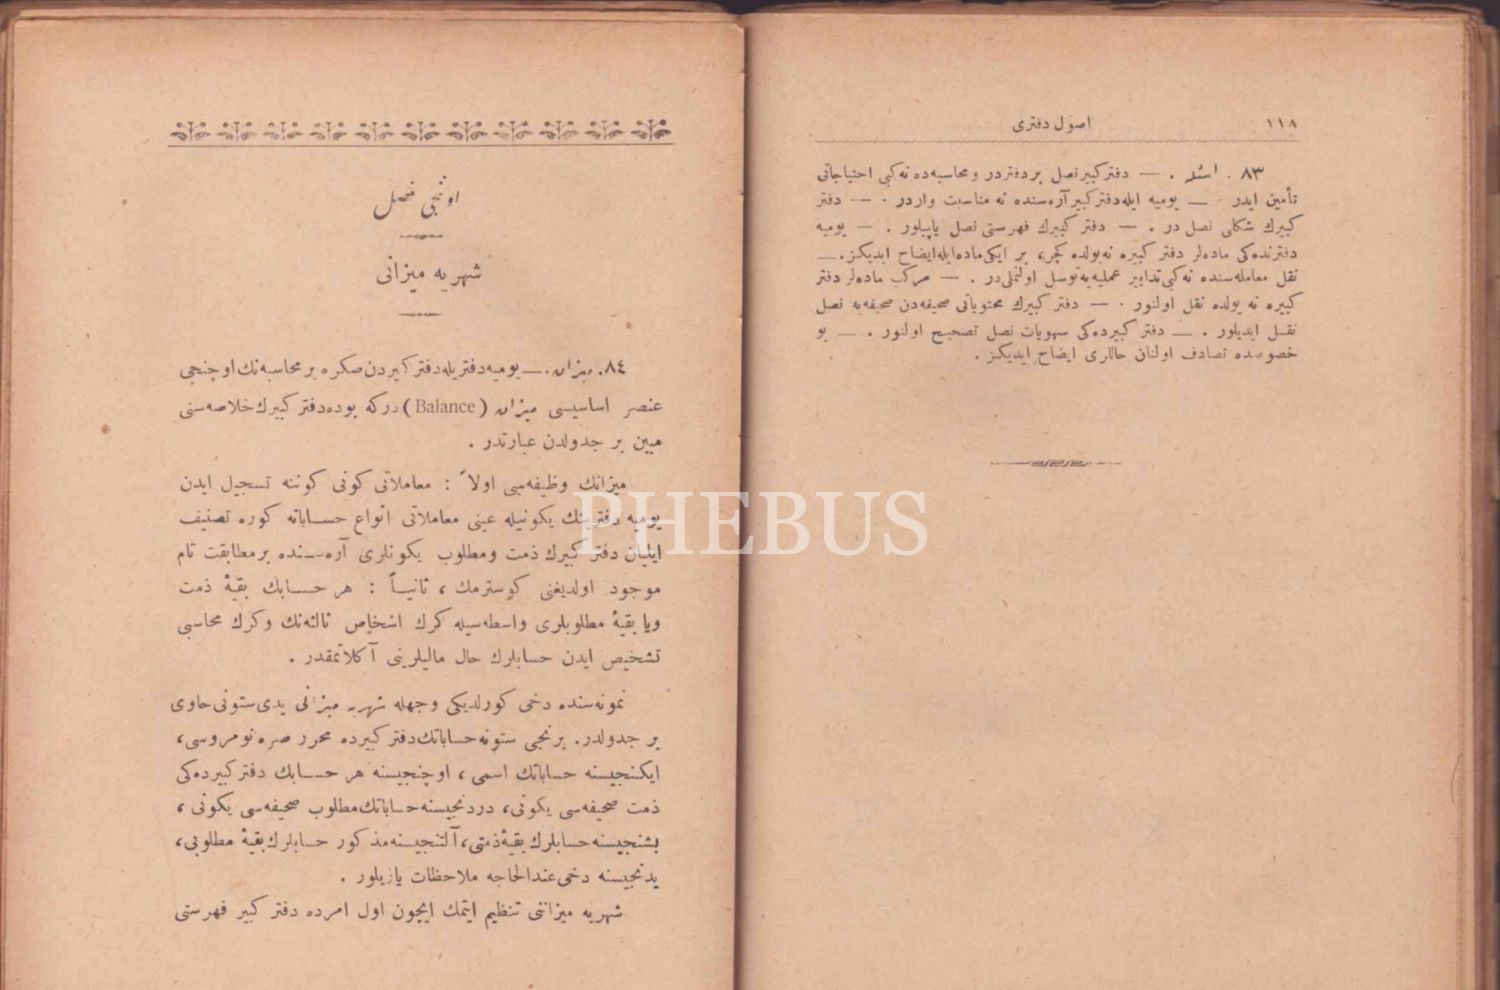 ١١٨
اصول دفتری
٨٣ . اسئله . — دفتر كبیر نصل بر دفتردر و محاسبه‌ده نه كبی احتیاجاتی
تأمین ایدر . — یومیه ایله دفتر كبیر آره‌سنده نه مناسبت واردر . — دفتر
كبیرك شكلی نصل در . — دفتر كبیرك فهرستی نصل یاپیلور . — یومیه
دفترنده‌كی ماده‌لر دفتر كبیره نه یولده كچر، بر ایكی ماده ایله ایضاح ایدیكز . —
نقل معامله‌سنده نه كبی تدابیر عملیه‌یه توسل اولنملی‌در . — مركب ماده‌لر دفتر
كبیره نه یولده نقل اولنور . — دفتر كبیرك محتویاتی صحیفه‌دن صحیفه‌یه نصل
نقل ایدیلور . — دفتر كبیرده‌كی سهویات نصل تصحیح اولنور . — بو
خصوصده تصادف اولنان حاللری ایضاح ایدیكز .
اوننجی فصل
شهریه میزانی
٨٤ . میزان . — یومیه دفتریله دفتر كبیردن صكره بر محاسبه‌نك اوچنجی
عنصر اساسیسی میزان (Balance) دركه بوده دفتر كبیرك خلاصه‌سنی
مبین بر جدولدن عبارتدر .
میزانك وظیفه‌سی اولاً : معاملاتی كونی كوننه تسجیل ایدن
یومیه دفترینك یكونیله عینی معاملاتی انواع حساباته كوره تصنیف
ایلیان دفتر كبیرك ذمت ومطلوب یكونلری آره‌سنده بر مطابقت تام
موجود اولدیغنی كوسترمك ، ثانیاً : هر حسابك بقیۀ ذمت
ویا بقیۀ مطلوبلری واسطه‌سیله كرك اشخاص ثالثه‌نك وكرك محاسبی
تشخیص ایدن حسابلرك حال مالیلرینی آكلاتمقدر .
نمونه‌سنده دخی كورلدیكی وجهله شهریه میزانی یدی ستونی حاوی
بر جدولدر. برنجی ستونه حساباتك دفتر كبیرده محرر صره نومروسی،
ایكنجیسنه حساباتك اسمی ، اوچنجیسنه هر حسابك دفتر كبیرده‌كی
ذمت صحیفه‌سی یكونی، دردنجیسنه حساباتك مطلوب صحیفه‌سی یكونی ،
بشنجیسنه حسابلرك بقیۀ ذمتی، آلتنجیسنه مذكور حسابلرك بقیۀ مطلوبی،
یدنجیسنه دخی عندالحاجه ملاحظات یازیلور .
شهریه میزاننی تنظیم ایتمك ایچون اول امرده دفتر كبیر فهرستی
PHEBUS